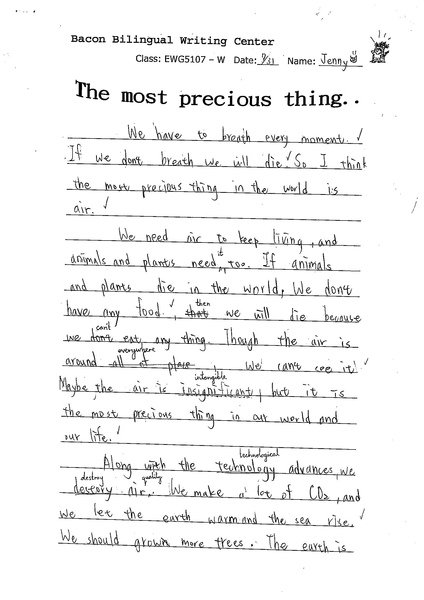 Bacon Bilingual Writing Center
Class: EWG5107 – W Date: 9/31 Name: Jenny
The most precious thing..
We have to breath every moment. ✓
If we dont breath we will die.✓ So I think
the most precious thing in the world is
air. ✓
We need air to keep living, and
it
animals and plants need, too. If animals
and plants die in the world, We don't
then
have any food.✓, that we will die because
can't
we don't eat any thing. Though the air is
everywhere
around all of place, We can't see it! ✓
intangible
Maybe, the air is insignificant, but it is
the most precious thing in our world and
our life. ✓
technological
Along with the technology advances, we
destroy quality
destory air. We make a lot of CO2, and
we let the earth warm and the sea rise. ✓
We should grown more trees. The earth is